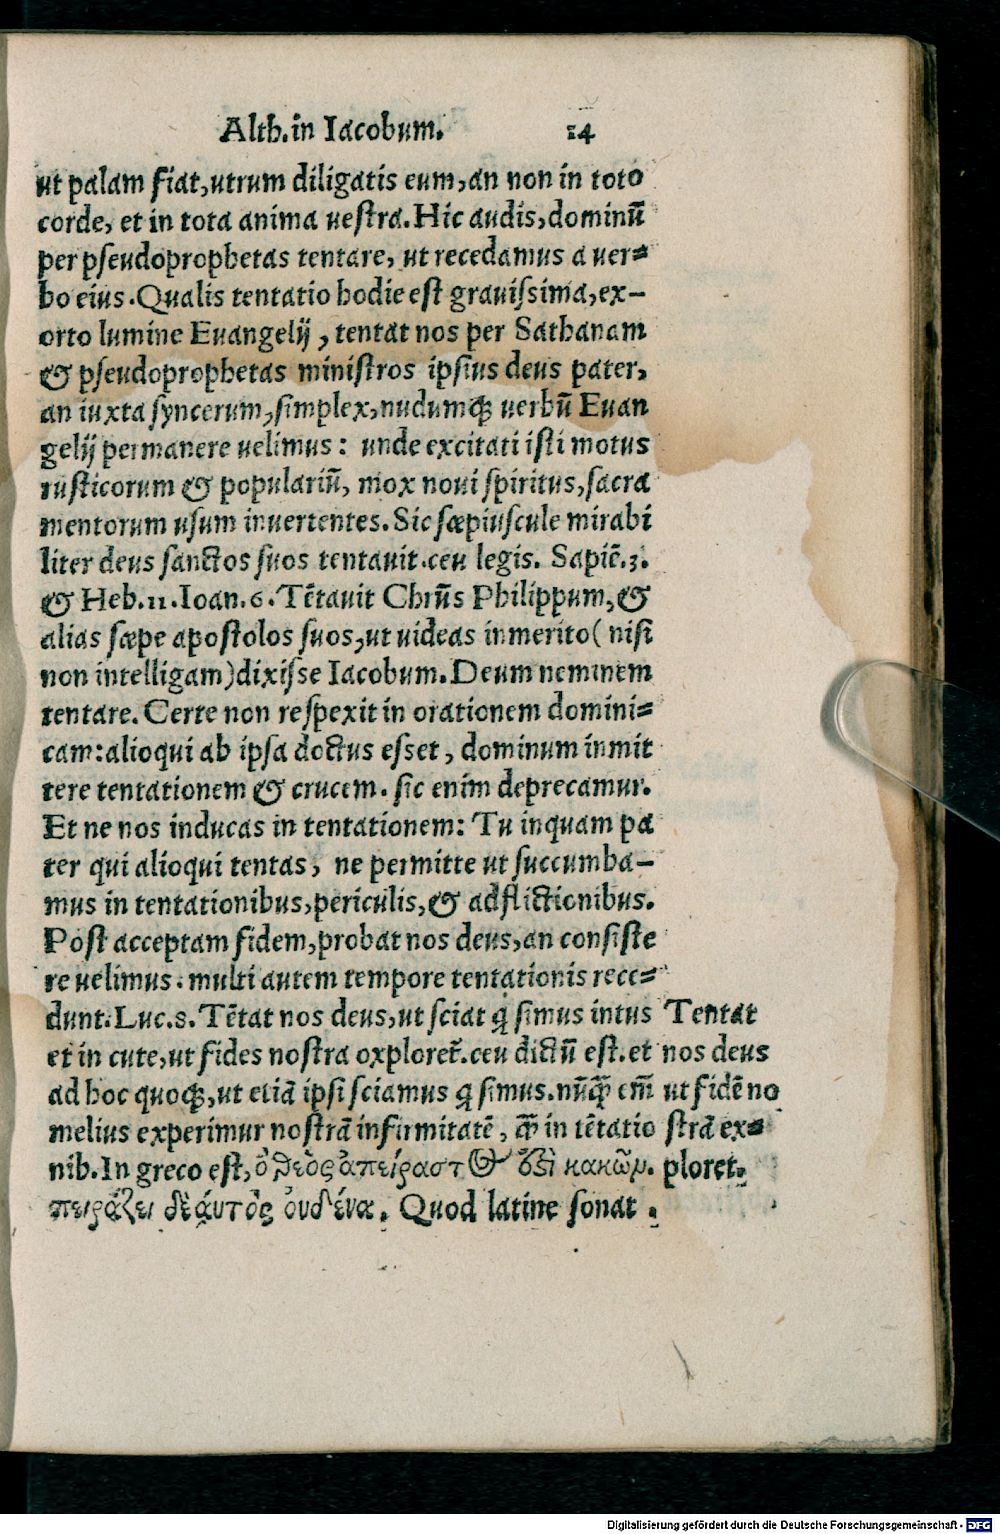 Alth. in Iacobum. 14
ut palam fiat, utrum diligatis eum, an non in toto
corde, et in tota anima uestra. Hic audis, dominū
per pseudoprophetas tentare, ut recedamus a uer=
bo eius. Qualis tentatio hodie est grauissima, ex-
orto lumine Euangelij, tentat nos per Sathanam
& pseudoprophetas ministros ipsius deus pater,
an iuxta syncerum, simplex, nudumq; uerbū Euan
gelij permanere uelimus: unde excitati isti motus
rusticorum & populariū, mox noui spiritus, sacra
mentorum usum inuertentes. Sic sæpiuscule mirabi
liter deus sanctos suos tentauit. ceu legis. Sapiē.3.
& Heb.11. Ioan.6. Tētauit Chrūs Philippum, &
alias sæpe apostolos suos, ut uideas inmerito (nisi
non intelligam) dixisse Iacobum. Deum neminem
tentare. Certe non respexit in orationem domini=
cam: alioqui ab ipsa doctus esset, dominum inmit
tere tentationem & crucem. sic enim deprecamur.
Et ne nos inducas in tentationem: Tu inquam pa
ter qui alioqui tentas, ne permitte ut succumba-
mus in tentationibus, periculis, & adflictionibus.
Post acceptam fidem, probat nos deus, an consiste
re uelimus. multi autem tempore tentationis rece=
dunt. Luc.8. Tētat nos deus, ut sciat q simus intus
et in cute, ut fides nostra oxploret̄. ceu dictū est. et
ad hoc quoq;, ut etiā ipsi sciamus q simus. nūq̄ em̄
melius experimur nostrā infirmitatē, q̄ in tētatio
nib. In greco est, ὁ θεὸς ἀπείραστος ἐστὶ κακῶν.
πειράζει δὲ ἀυτὸς οὐδένα. Quod latine sonat.
Tentat
nos deus
ut fidē no
strā ex=
ploret.
Digitalisierung gefördert durch die Deutsche Forschungsgemeinschaft - DFG